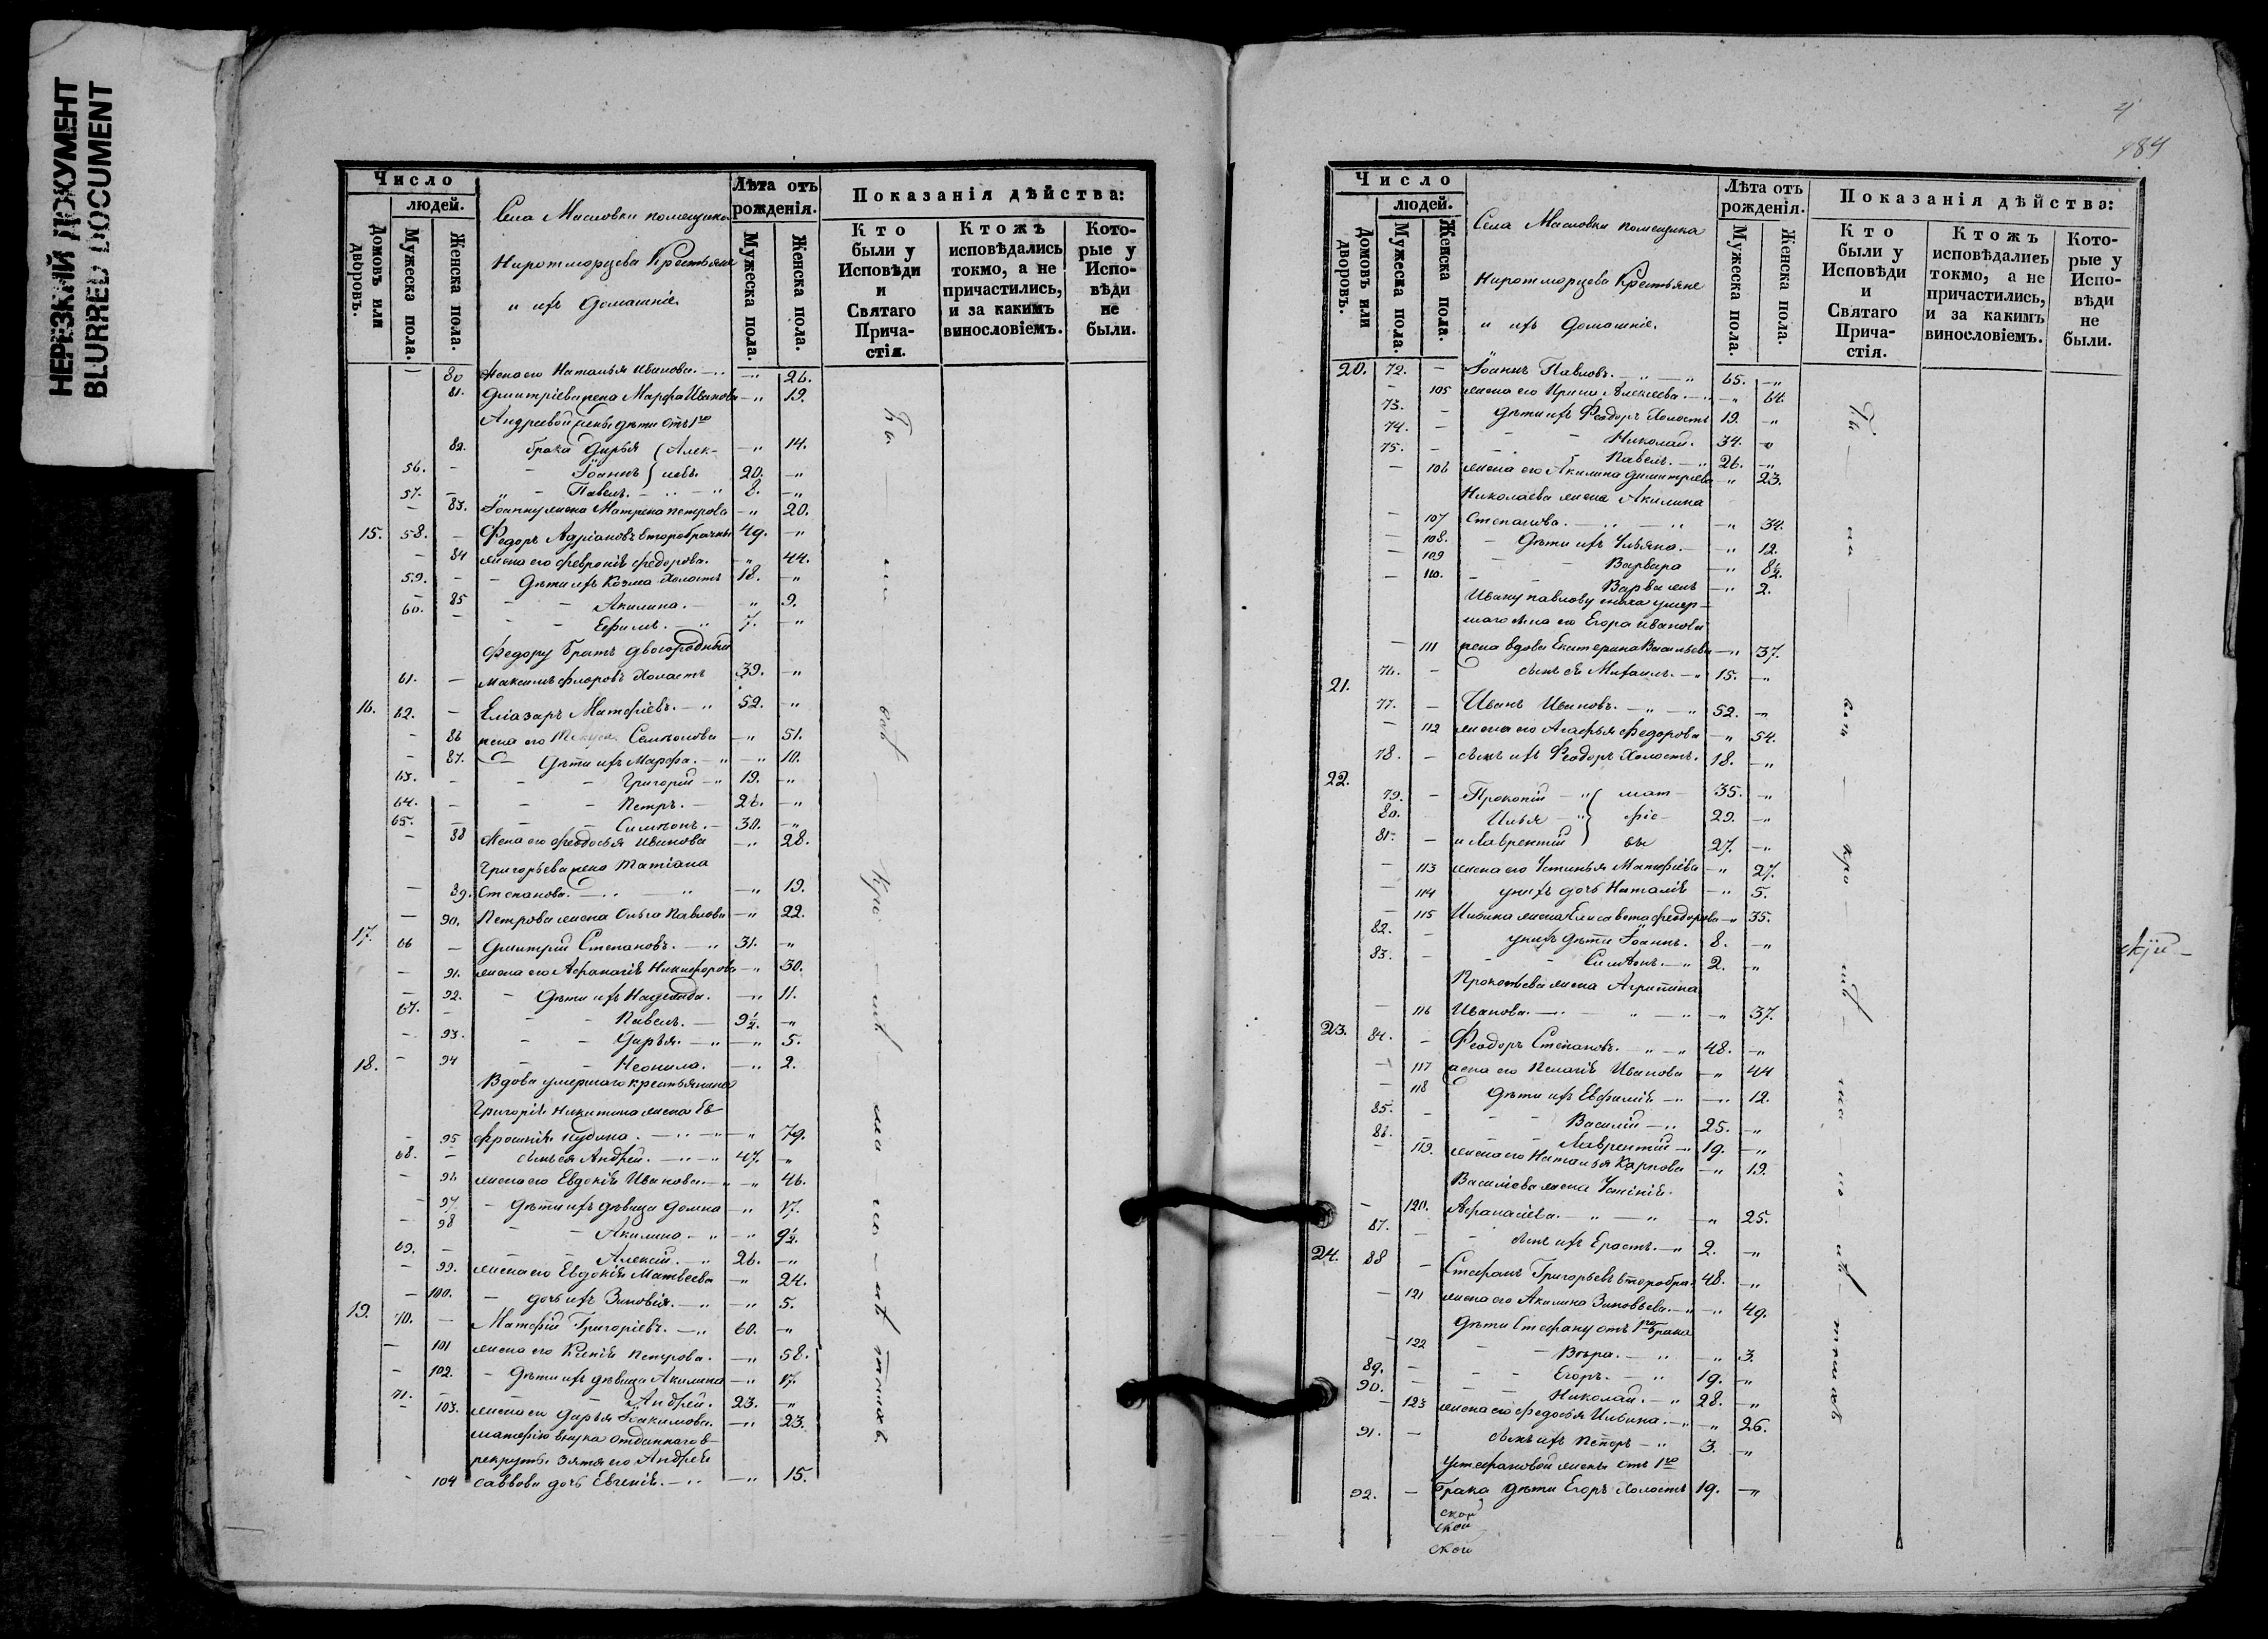 НЕРЕЗКИЙ ДОКУМЕНТ
BLURRED DOCUMENT
Число
людей.
Домовъ или дворовъ.
Мужеска пола.
Женска пола.
Села Масловки помещика
Крестьяне
и ихъ Домашніе.
Лѣта отъ рожденія.
Мужеска пола.
Женска пола.
Показанія дѣйства:
Кто были у Исповѣди и Святаго Прича-стія.
Ктожъ исповѣдались токмо, а не причастились, и за какимъ винословіемъ.
Кото-рые у Испо-вѣди не были.
— 80 жена его Наталья Иванова. — " 26.
81. Дмитріева жена Марфа Иванова — " 19.
Андреевой жены дѣти отъ 1го
82. брака Дарья (Алек- — " 14.
56. — Іоаннъ } 20. — "
57. — Павелъ. — 8. — "
— 83. Іоанну жена Матрена Петрова — " 20.
15. 58. — Федоръ Адріановъ второбрачный 49. — "
— 84 жена его Февронія Федорова. — " 44.
59. — Дѣти ихъ Козма Холостъ 18. — "
— 85 — Акилина. — " 9.
60. — Ефимъ. — 7. — "
Федору братъ двоюродный
61. — Максимъ Флоровъ Холостъ 39. — "
16. 62. — Еліазаръ Матфіевъ. — " 52. — "
— 86 жена его Семионова — " 51.
— 87. — Дѣти ихъ Марфа. — " 10.
63. — Григорій — " 19. — "
64. — Петръ. — 26. — "
65. — Симеонъ. — 30. — "
— 88 жена его Феодосья Иванова — " 28.
Григорьева жена Татіана
— 89. Степанова. — " 19.
— 90. Петрова жена Ольга Павлова — " 22.
17. 66 — Дмитрій Степановъ. — " 31. — "
— 91. жена его Афанасія Никифорова — " 30.
— 92. — Дѣти ихъ Надежда. — " 11.
67. — Павелъ. — 9½. — "
— 93. — Дарья. — " 5.
18. — 94 — Неонила. — " 2.
Вдова умершаго крестьянина
Григорія Никитина жена Ев-
— 95 фросинія — " 79.
68. — сынъ ея Андрей. — " 47. — "
— 96 жена его Евдокія Иванова. — " 46.
— 97 — Дѣти ихъ дѣвица Домна — " 17.
— 98 — Акилина — " 9½.
69. — Алексій. — " 26. — "
— 99. жена его Евдокія Матвеева — " 24.
— 100. — дочь ихъ Зиновія. — " 5.
19. 70. — Матфій Григоріевъ. — " 60. — "
— 101 жена его Ксенія Петрова. — " 58.
— 102. — Дѣти ихъ дѣвица Акилина — " 17.
71. — Андрей. — 23. — "
— 103. жена его Дарья Іоакимова. — " 23.
Матфію внука отданнаго в
рекруты зятя его Андрея
— 104 Саввова дочь Евгенія. — " 15.
4
184
Число
людей.
Домовъ или дворовъ.
Мужеска пола.
Женска пола.
Села Масловки помещика
Крестьяне
и ихъ Домашніе.
Лѣта отъ рожденія.
Мужеска пола.
Женска пола.
Показанія дѣйства:
Кто были у Исповѣди и Святаго Прича-стія.
Ктожъ исповѣдались токмо, а не причастились, и за какимъ винословіемъ.
Кото-рые у Испо-вѣди не были.
20. 72. — Іоаннъ Павловъ. — " 65. — "
— 105 жена его Ирина Алексеева. — " 64.
73. — Дѣти ихъ Феодоръ Холостъ 19. — "
74. — Николай. 34. — "
75. — Павелъ. — 26. — "
— 106 жена его Акилина Димитріева — " 23.
Николаева жена Акилина
— 107 Степанова. — " 34.
— 108. — Дѣти ихъ Ульяна. — " 12.
— 109 — Варвара — " 8½.
— 110. — — " 2.
Ивану Павлову сноха умер-
шаго сына его Егора Иванова
— 111 жена вдова Екатерина Васильева — " 37.
76. — сынъ ея Михаилъ. — " 15. — "
21.
77. — Иванъ Ивановъ. — " 52. — "
— 112 жена его Агафья Федорова — " 54.
78. — сынъ ихъ Феодоръ Холостъ. 18. — "
22.
79. — Прокопій — " } мат- 35. — "
80. Илья — " } фіе- 29. — "
81. — и Лаврентій } вы 27. — "
— 113 жена его Устинья Матфіева — " 27.
— 114 у нихъ дочь Наталія — " 5.
— 115 Ильина жена Елисавета Феодорова — " 35.
82. — у нихъ дѣти Іоаннъ. 8. — "
83. — Симеонъ. — " 2. — "
Прокопьева жена Агрипина
— 116 Иванова. — " 37.
23. 84. — Феодоръ Степановъ. — " 48. — "
— 117 жена его Пелагія Иванова — " 44
— 118 Дѣти ихъ Евфимія — " 12.
85. — Василій — " 25. — "
86. — Лаврентій — 19. — "
— 119. жена его Наталья Карпова — " 19.
Василіева жена Устинія
— 120. Афанасіева. — " 25.
87. — сынъ ихъ Ерастъ. — " 2. — "
24. 88 — Стефанъ Григорьевъ второбра. 48. — "
— 121 жена его Акилина Зиновьева. — " 49.
Дѣти Стефану отъ 1го брака
— 122 — Вѣра. — " 3.
89. — Егоръ. — " 19. — "
90. — Николай. — " 28. — "
— 123 жена его Федосья Ильина. — " 26.
91. — сынъ ихъ Петръ — " 3. — "
У Стефановой жены отъ 1го
92. — брака дѣти Егоръ Холостъ 19. — "
ской
ской
ской